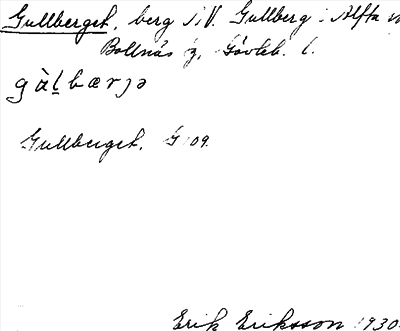 Gullberget, berg i N.V. Gullberg i Alfta
Bollnäs Gävleb. l.
gὰḷbærjə
Gullberget. G 109.
Erik Eriksson 1930.